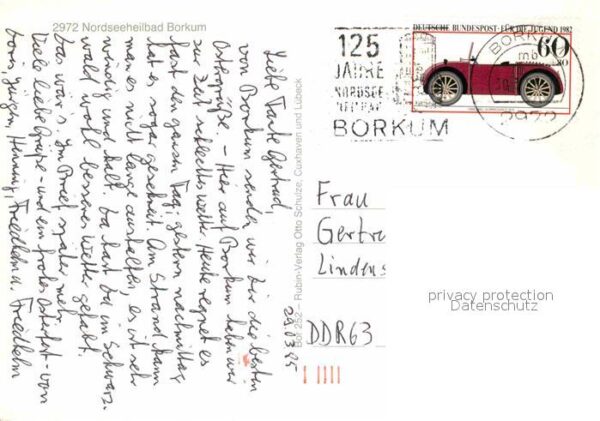 2972 Nordseeheilbad Borkum
Liebe Tante Gertrud,
von Borkum senden wir Dir die besten
Ostergrüße. – Hier auf Borkum haben wir
zur Zeit schlechtes Wetter. Heute regnet es
fast den ganzen Tag; gestern nachmittag
hat es sogar geschneit. Am Strand kann
man es nicht lange aushalten, es ist sehr
windig und kalt. Da hast Du im Schwarz-
wald wohl besseres Wetter gehabt.
Das wär's. Im Brief später mehr.
Viele liebe Grüße und ein frohes Osterfest – von
Doris, Jürgen, Henning, Friedlinde, Friedhelm
29.03.85
Bor 252 – Rubin-Verlag Otto Schulze, Cuxhaven und Lübeck
DEUTSCHE BUNDESPOST · FÜR DIE JUGEND 1982
60
+30
125
JAHRE
NORDSEE-
HEILBAD
BORKUM
BORKUM
2972
Frau
Gertru
Lindens
DDR 63
privacy protection
Datenschutz